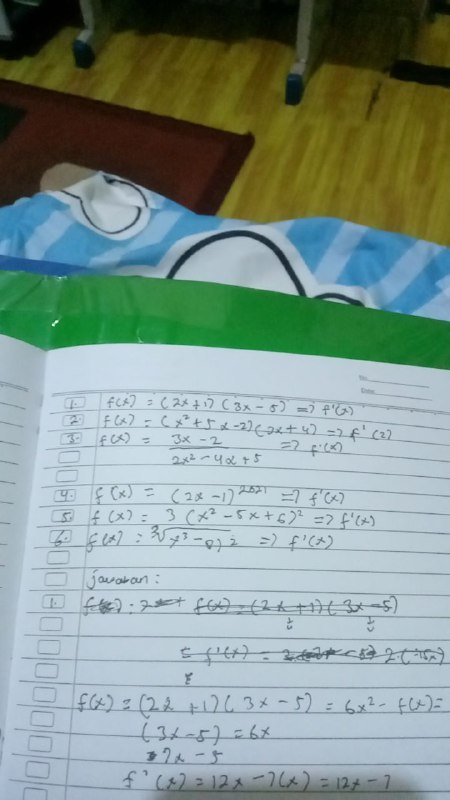 No:
Date:
1. f(x) = (2x+1) (3x-5) => f'(x)
2. f(x) = (x²+5x-2)(2x+4) => f'(2)
3. f(x) = 3x-2 => f'(x)
2x²-4x+5
4. f(x) = (2x-1)²⁰²¹ => f'(x)
5. f(x) = 3 (x²-5x+6)² => f'(x)
6. f(x) = => f'(x)
jawaban:
1. f(x) = (2x+1) (3x-5)
= f'(x) =
f(x) = (2x+1) (3x-5) = 6x² - f(x) =
(3x-5) = 6x
7x-5
f'(x) = 12x-7(x) = 12x-7